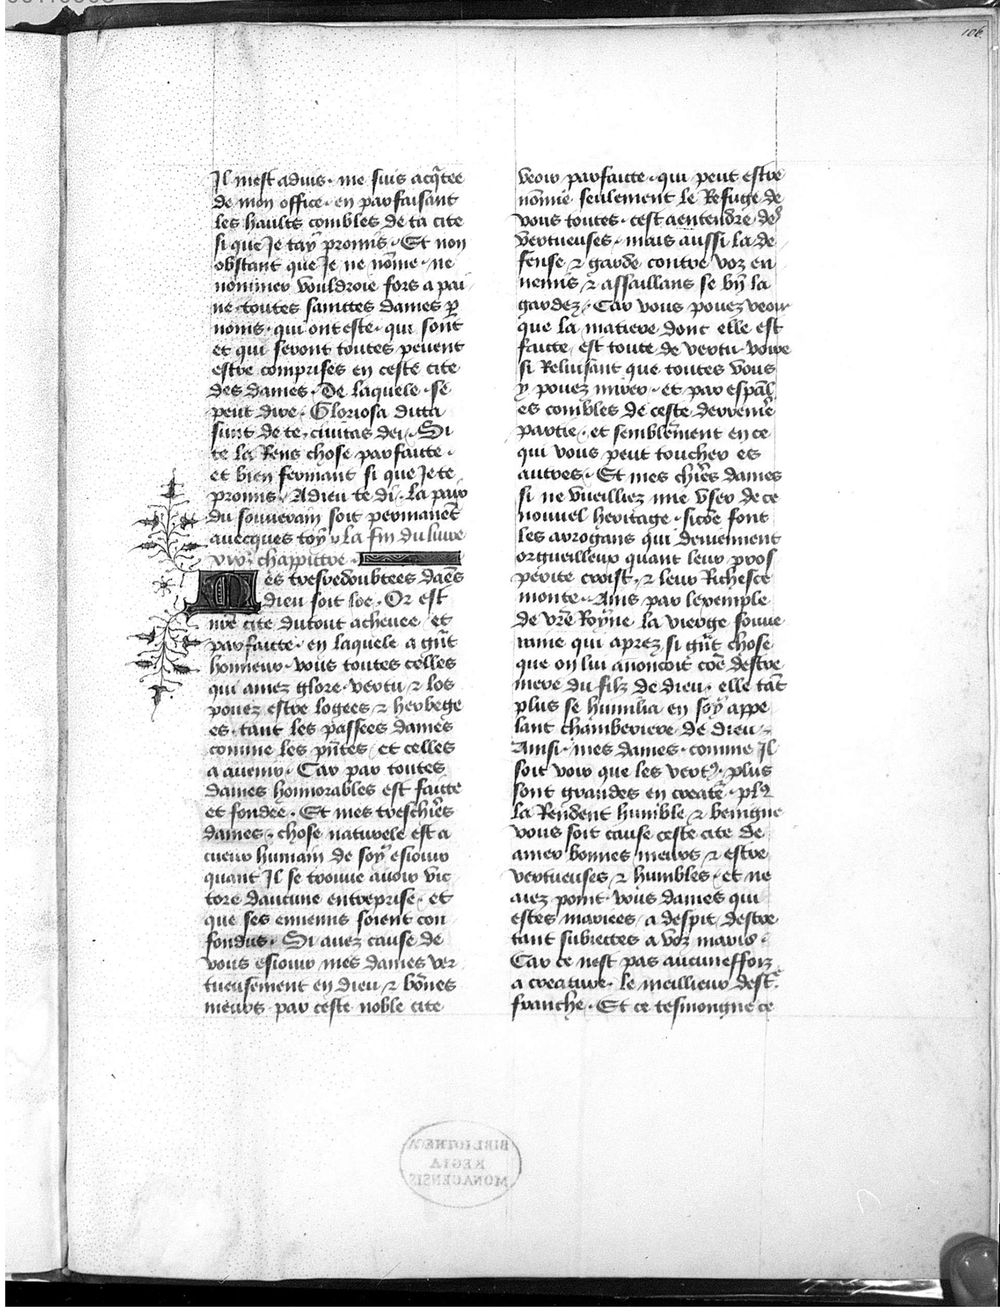 106
Il mest aduis · me suis acq̃tee
de mon office · en parfaisant
les haults combles de ta cite
si que Je tay promis · Et non
obstant que Je ne nõme · ne
nommer vouldroie fors a pai
ne · toutes sainctes dames p̲
noms · qui ont este · qui sont
et qui seront toutes peuent
estre comprises en ceste cite
des dames · De laquele · se
peut dire · Gloriosa dicta
sunt de te, ciuitas dei · Si
te la Rens chose parfaicte ·
et bien fermant si que Je te
promis · Adieu te di · La paix
du souuerain soit permanẽt
auecques toy · La fin du liure
chappittre ·
Mes tresredoubtees dães
dieu soit loe · Or est
nr̃e cite dutout acheuee et
parfaicte · en laquele a gr̃t
honneur · vous toutes celles
qui amez glore · vertu ⁊ los
pouez estre logees ⁊ herbege
es · tant les passees dames
comme les pñtes / et celles
a auenir · Car par toutes
dames honnorables est faicte
et fondee · Et mes treschier̃s
dames · chose naturele est a
cueur humain de soy esiouir
quant Il se trouue auoir vic
tore daucune entreprise · et
que ses ennemis soient con
fondus · Si auez cause de
vous esiouir mes dames ver
tueusement en dieu ⁊ bõnes
meurs · par ceste noble cite
veoir parfaicte · qui peut estre
nõmee seulement le Refuge de
vous toutes · cest aentendre des
vertueuses · mais aussi la de
fense ⁊ garde contre voz en
nemis ⁊ assaillans se bñ la
gardez · Car vous pouez veoir
que la matiere dont elle est
faicte / est toute de vertu · voire
si Reluisant que toutes vous
y pouez mirer · et par esp̃al
es combles de ceste derreniẽ
partie · et semblem̃ent en ce
qui vous peut toucher es
autres · Et mes chier̃s dames
si ne vueilliez mie vser de ce
nouuel heritage · sicõe font
les arrogans qui deuiennent
orgueilleux quant leur pros
perite croist, ⁊ leur Richesce
monte · Ains par lexemple
de vr̃e Royne la vierge souue
raine qui aprez si gr̃t chose
que on lui anoncoit cõe destre
mere du filz de dieu · elle tãt
plus se humilia en soy appe
lant chamberiere de dieu ·
Ainsi · mes dames · comme Il
soit voir que les vert⁹ · plus
sont grandes en creatẽ · pl⁹
la Rendent humble ⁊ beingne
vous soit cause ceste cite de
amer bonnes meurs ⁊ estre
vertueuses ⁊ humbles · et ne
aiez point · vous dames qui
estes mariees · a despit destre
tant subiectes a voz maris ·
Car ce nest pas aucuneffoiz
a creature · le meillieur dest̃
franche · Et ce tesmongne ce
BIBLIOTHECA
REGIA
MONACENSIS